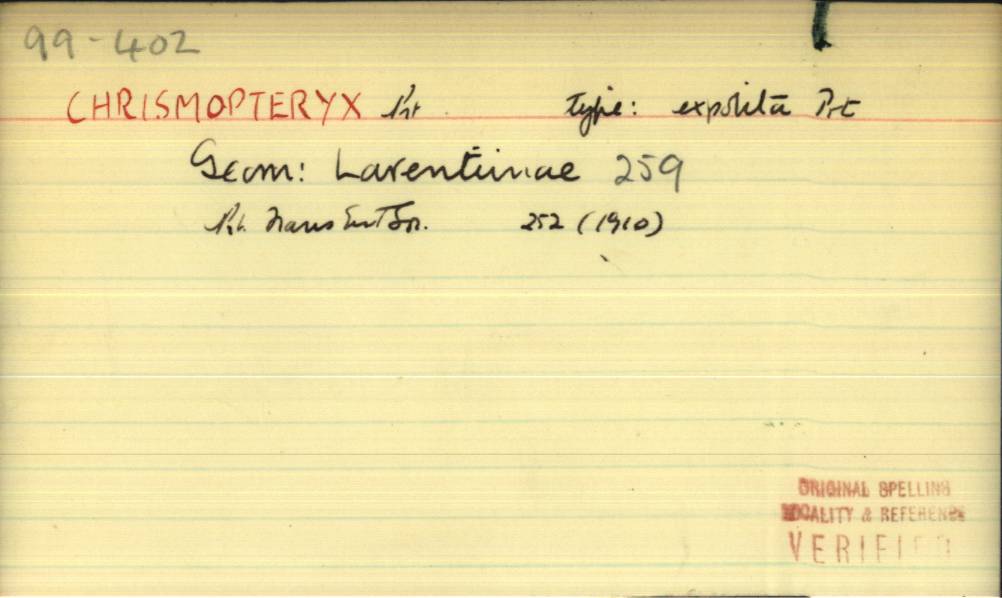 99-402
CHRISMOPTERYX Prt. type: expolita Prt
Geom: Larentiinae 259
Prt. Trans Ent Soc. 252 (1910)
ORIGINAL SPELLING
LOCALITY & REFERENCE
VERIFIED